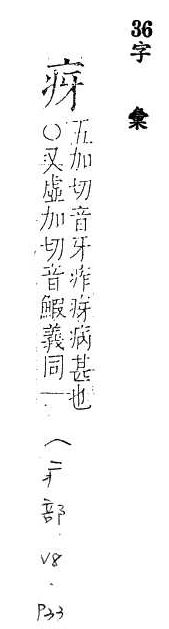 36字彙
疨
五加切音牙痄疨病甚也
○又虛加切音鰕義同—
(疒部.V8.P33